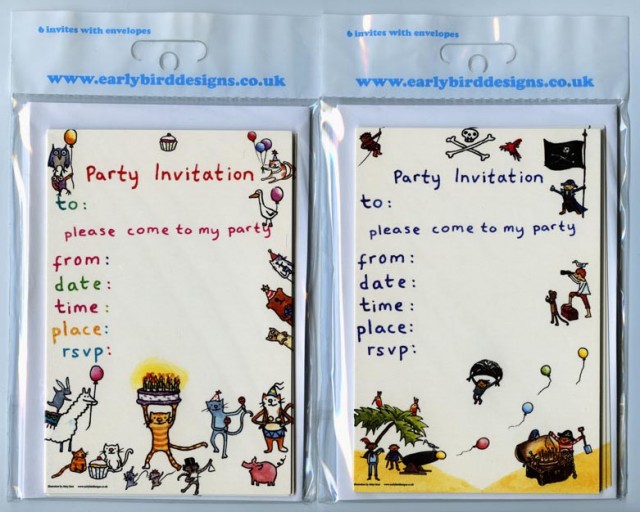 6 invites with envelopes
www.earlybirddesigns.co.uk
Party Invitation
to:
please come to my party
from:
date:
time:
place:
rsvp:
6 invites with envelopes
www.earlybirddesigns.co.uk
Party Invitation
to:
please come to my party
from:
date:
time:
place:
rsvp: